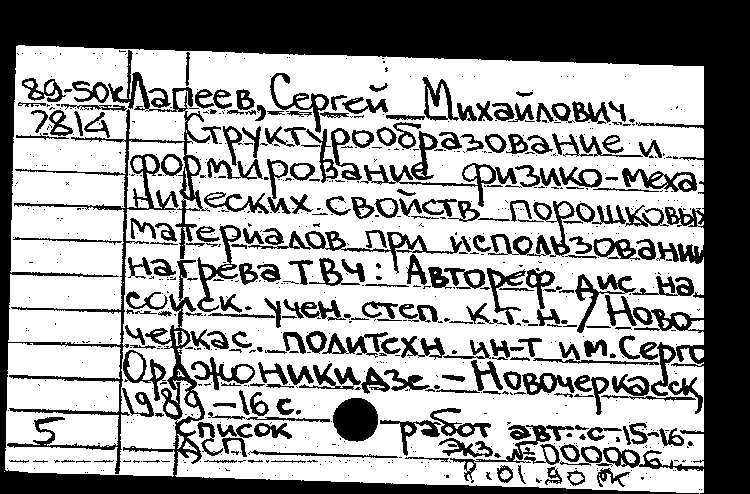 89-50к Лапеев, Сергей Михайлович.
7814 Структурообразование и
формирование физико-меха-
нических свойств порошковых
материалов при использовании
нагрева ТВЧ: Автореф. дис. на
соиск. учен. степ. к.т.н. / Ново-
черкас. политехн. ин-т им. Серго
Орджоникидзе. – Новочеркасск,
1989. – 16 с.
5 Список работ авт.: с. 15-16.
ДСП. Экз. № 000006.
8.01.90